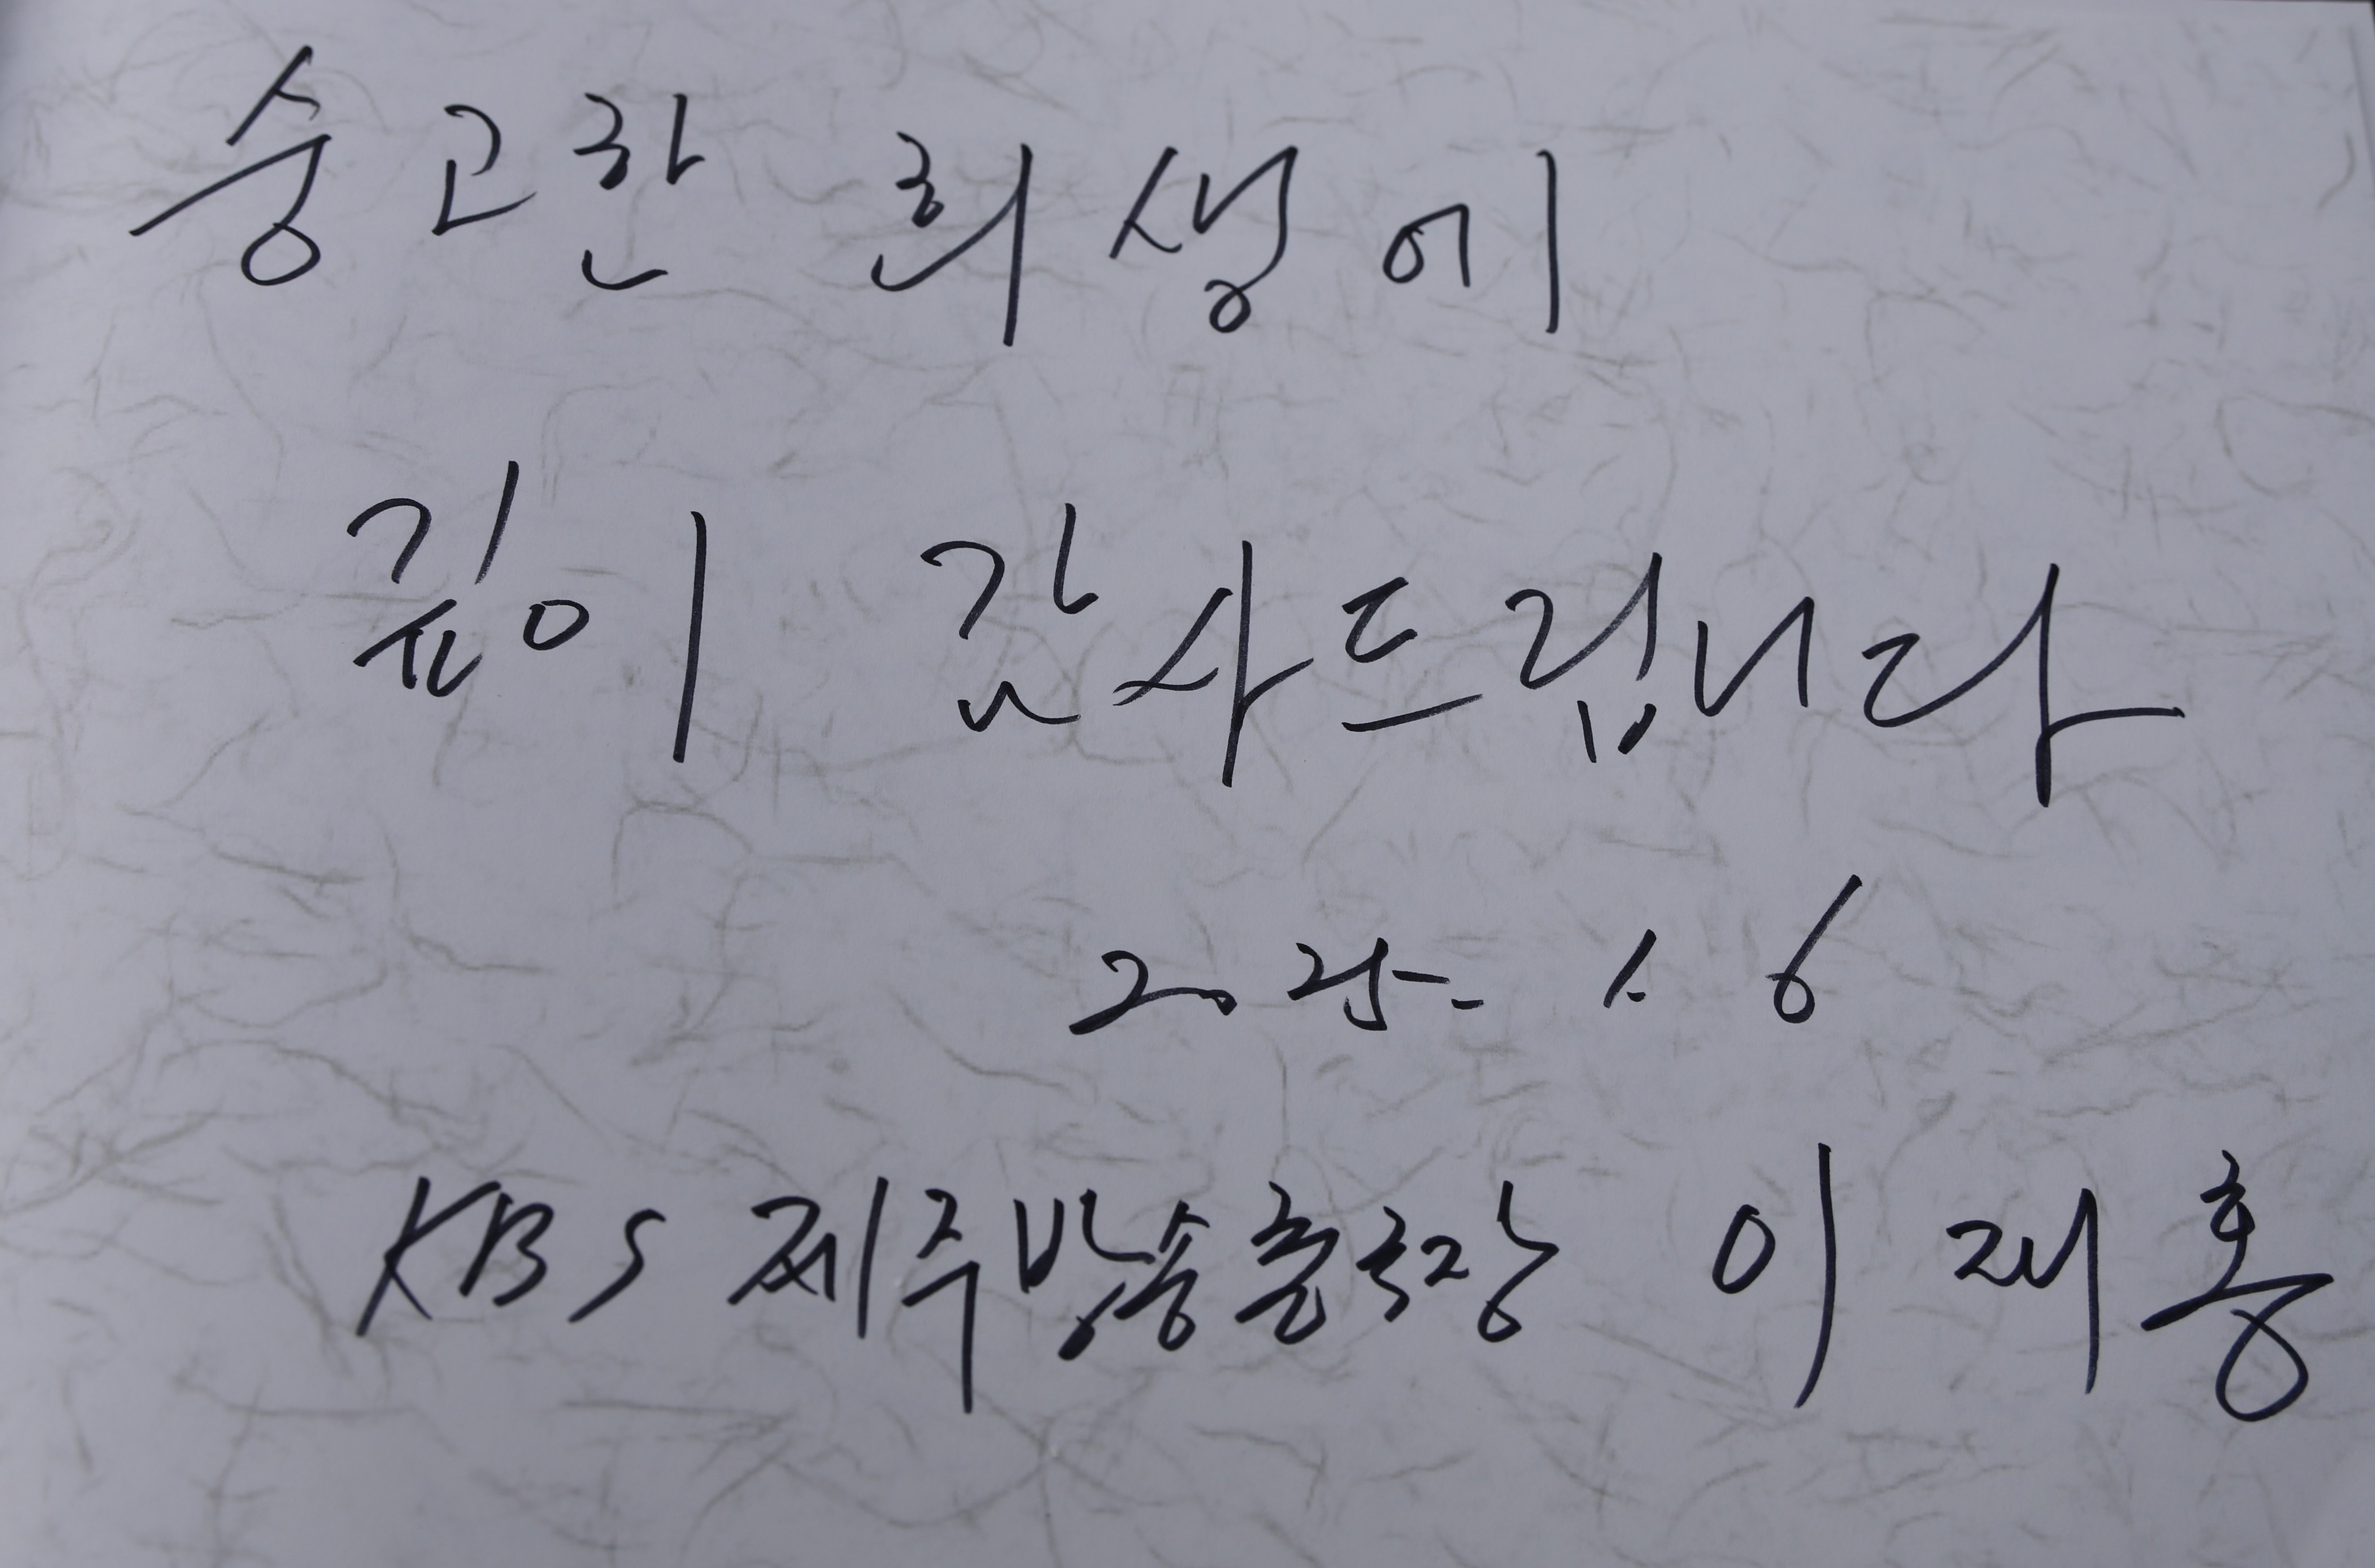 숭고한 희생에
깊이 감사드립니다
2025. 1. 6
KBS 제주방송총국장 이재홍